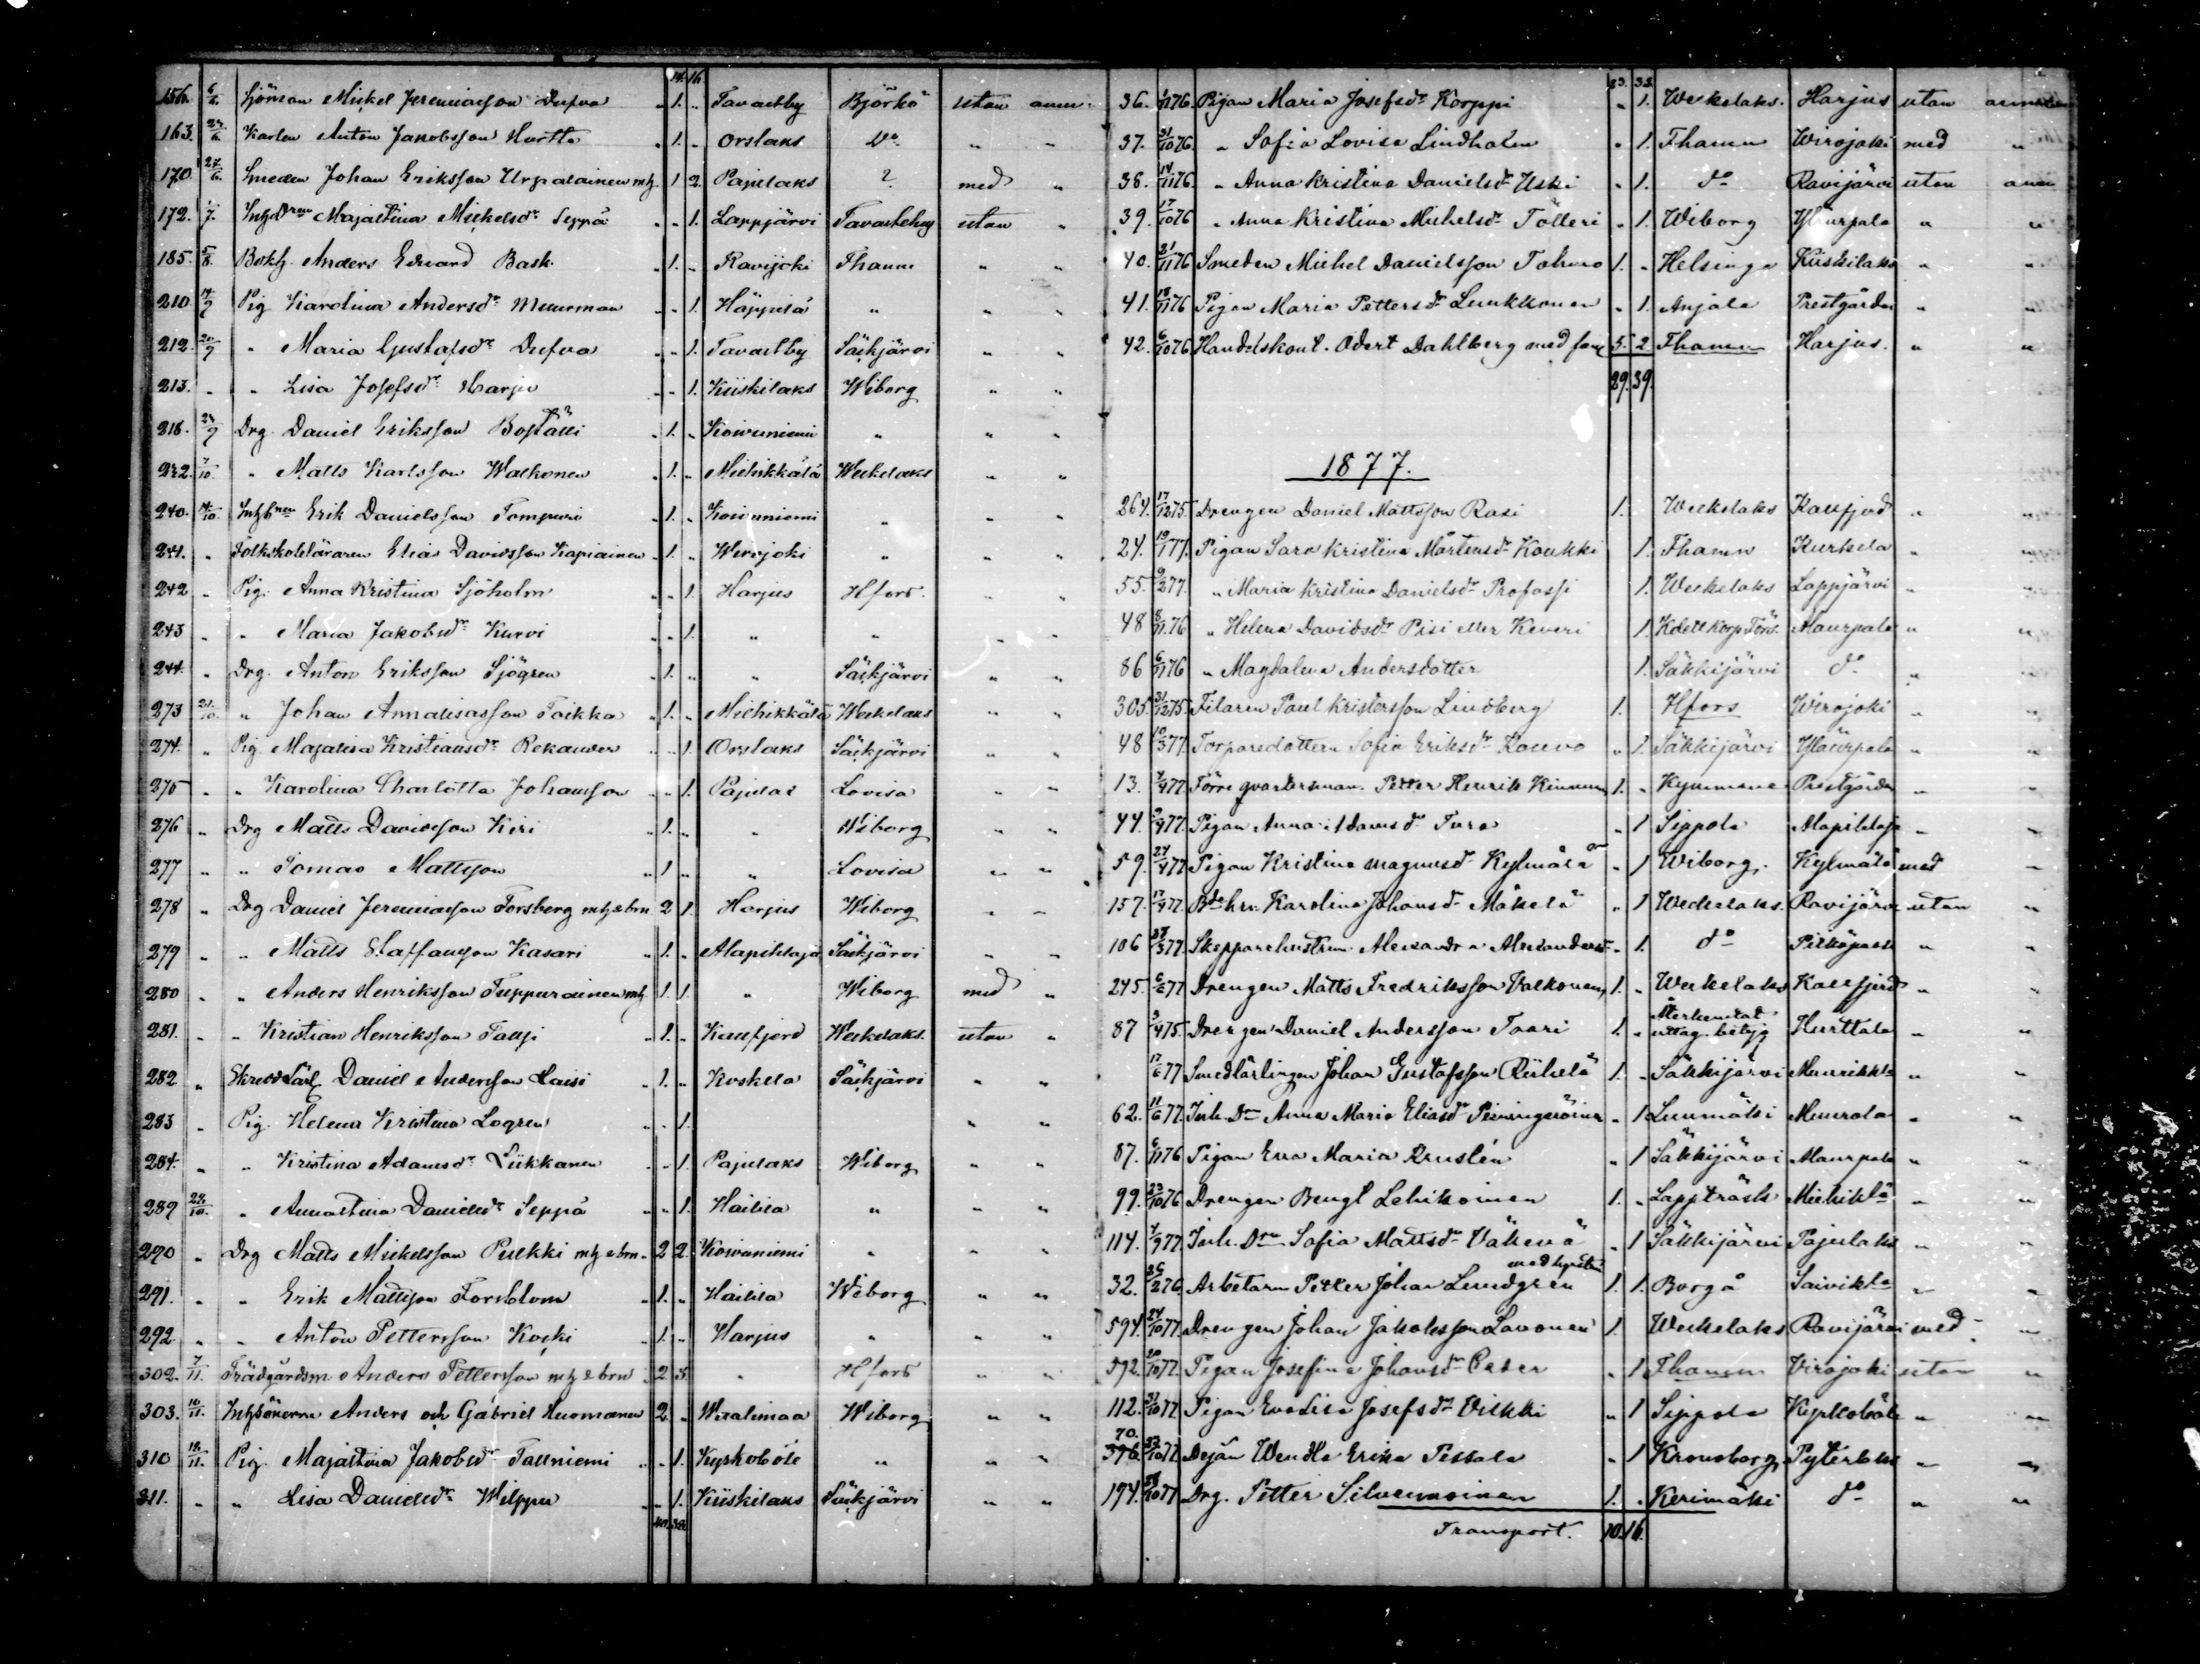 14. 16.
156. 6/6. Sjöman Mickel Jeremiasson Dufva " 1. " Tavastby Björkö utan anm.
163. 24/6. Karlen Anton Jakobsson Hurtta " 1. " Orslaks Do " "
170. 27/6. Smeden Johan Eriksson Urpalainen mh. 1 2. Pajulaks ? med "
172. 1/7. Majastina Mickelsdr Seppä " " 1. Lappjärvi Tavastehus utan "
185. 5/8. Bokh. Anders Eduard Bask. " 1. " Ravijoki Fhamn " "
210. 14/9 Pig Karolina Andersdr Muurman " " 1. Häppilä " " "
212. 20/9 " Maria Gustafsdr Dufva " " 1. Tavastby Säkjärvi " "
213. " " Lisa Josefsdr Harju " " 1. Kiiskilaks Wiborg " "
218. 24/9 Drg. Daniel Eriksson " 1. " Koivuniemi " " "
232. 7/10. " Matts Karlsson Walkonen " 1. " Miehikkälä Weckelaks " "
240. 14/10. Erik Danielsson Tompuri " 1. " Koivuniemi " " "
241. " Folkskoleläraren Elias Davidsson Kapiainen " 1. " Wirojoki " " "
242 " Pig. Anna Kristina Sjöholm " " 1. Harjus Hfors. " "
243 " " Maria Jakobsdr Kurvi " " 1. " " " "
244. " Drg. Anton Eriksson Sjögren " 1. " " Säkjärvi " "
273 21/10. " Johan Annalisasson Taikka " 1. " Miehikkälä Weckelaks " "
274. " Pig Majalisa Kristiansdr Rekander " " 1. Orslaks Säkjärvi " "
275 " " Karolina Charlotta Johansson " " 1. Pajulax Lovisa " "
276 " Drg Matts Davidsson Kiri " 1. " " Wiborg " "
277 " " Tomas Mattsson " 1 " " Lovisa " "
278 " Drg Daniel Jeremiasson Forsberg mh. o brn 2 1. Harjus Wiborg " "
279 " " Matts Staffansson Kasari " 1. " Alapihlaja Säkjärvi " "
280 " " Anders Henriksson Tuppurainen mh. 1. 1. " Wiborg med "
281. " " Kristian Henriksson " 1. " Kallfjerd Weckelaks. utan "
282 " Daniel Andersson Laisi " 1. " Koskela Säkjärvi " "
283 " Pig. Helena Kristina Logren " " 1. " "
284. " " Kristina Adamsdr Liikkanen " " 1. Pajulaks Wiborg " "
289 24/10. " Annastina Danielsdr Seppä " " 1. Hailila " " "
290 " Drg Matts Mickelsson Pulkki mh. o brn. 2 2. Koivuniemi " " "
291. " " Erik Mattsson Forsblom " 1. " Hailila Wiborg " "
292. " " Anton Pettersson Koski " 1. " Harjus " " "
302. 7/11. Trädgårdsm. Anders Pettersson mh. o brn 2 3. " Hfors " "
303. 10/11. Anders och Gabriel Huomanen 2. " Waalimaa Wiborg " "
310 12/11. Pig. Majastina Jakobsdr Tallniemi " " 1. Kyrkoböle " " "
311. " " Lisa Danielsdr Wilppu " " 1. Kiiskilaks Säkjärvi " "
23. 33.
36. 1/1176. Pigan Maria Josefsdr Korppi " 1. Weckelaks. Harjus utan
37. 31/1076. " Sofia Lovisa Lindholm " 1. Fhamn Wirojoki med "
38. 14/1176. " Anna Kristina Danielsdr Uski " 1. do Ravijärvi utan anm
39. 17/1076 " Anna Kristina Michelsdr Tölleri " 1. Wiborg Yläurpala " "
40. 21/1176 Smeden Michel Danielsson Tahvo 1. " Helsinge Kiiskilaks " "
41. 18/1176 Pigan Maria Pettersdr Luukkonen " 1. Anjala Prestgården " "
42. 6/1076 Handelskont. Odert Dahlberg med fam 5. 2 Fhamn Harjus. " "
29. 39.
1877.
264. 17/1275. Drengen Daniel Mattsson Rasi 1. Weckelaks Kallfjerd " "
24. 19/177. Pigan Sara Kristina Mårtensdr Koukki 1. Fhamn Kurkela " "
55. 9/277. " Maria Kristina Danielsdr Profossi 1. Weckelaks Lappjärvi " "
48 8/1176 " Helena Davidsdr Pisi eller Keveri 1. Alaurpala " "
86 6/1176 " Magdalena Andersdotter 1. Säkkijärvi do " "
305. 31/1275. Filaren Paul Kristersson Lindberg 1. Hfors Wirojoki " "
48 10/377. Torparedottern Sofia Eriksdr Kouvo " 1. Säkkijärvi Yläurpala " "
13. 7/477. Förre qvartersman. Petter Henrik Kinnunen 1. " Kymmene Prestgården " "
44. 9/477. Pigan Anna Adamsdr Tura " 1 Sippola Alapihlaja " "
59. 24/477 Pigan Kristina Magnusdr Kylmälä " 1 Wiborg. Kylmälä med "
157. 17/477 Karolina Johansdr Mäkelä " 1 Weckelaks. Ravijärvi utan "
106 28/377. Skepparehustrun Alexandra Alexandersdr " 1. do Pitkäpaasi " "
245. 6/677 Drengen Matts Fredriksson Valkonen, 1. " Weckelaks Kallfjerd " "
87 3/475. Drengen Daniel Andersson Taari 1. " Återhemtat uttag. betyg Hurttala " "
17/677 Smedlärlingen Johan Gustafsson Riihelä 1. " Säkkijärvi Muurikka " "
62. 11/677. Inh. Dn Anna Maria Eliasdr " 1 Luumäki Muurola " "
87. 6/1176 Pigan Eva Maria Krustén " 1 Säkkijärvi Alaurpala " "
99. 23/1076 Drengen Bengt Lehikoinen 1. " Lappträsk Miehikkälä " "
114. 7/977 Inh. Dn Sofia Mattsdr Väkevä " 1 Säkkijärvi Pajulaks " "
med hustru
32. 25/276 Arbetarn Petter Johan Lundgren 1. 1. Borgå " "
594. 24/1077 Drengen Johan Jakobsson Lavonen 1. Weckelaks Ravijärvi med "
592. 20/1077. Pigan Josefina Johansdr " 1 Fhamn Virojoki utan "
112. 31/1077 Pigan Evalisa Josefsdr Vilkki " 1 Sippola Kyrkoböle " "
70.
1077. Dejan Wendla Erika Pessala " 1 Kronoborg Pyterlaks " "
194. 28/1077 Drg. Petter Silvennoinen 1. " Kerimäki do " "
Transport. 10. 16.